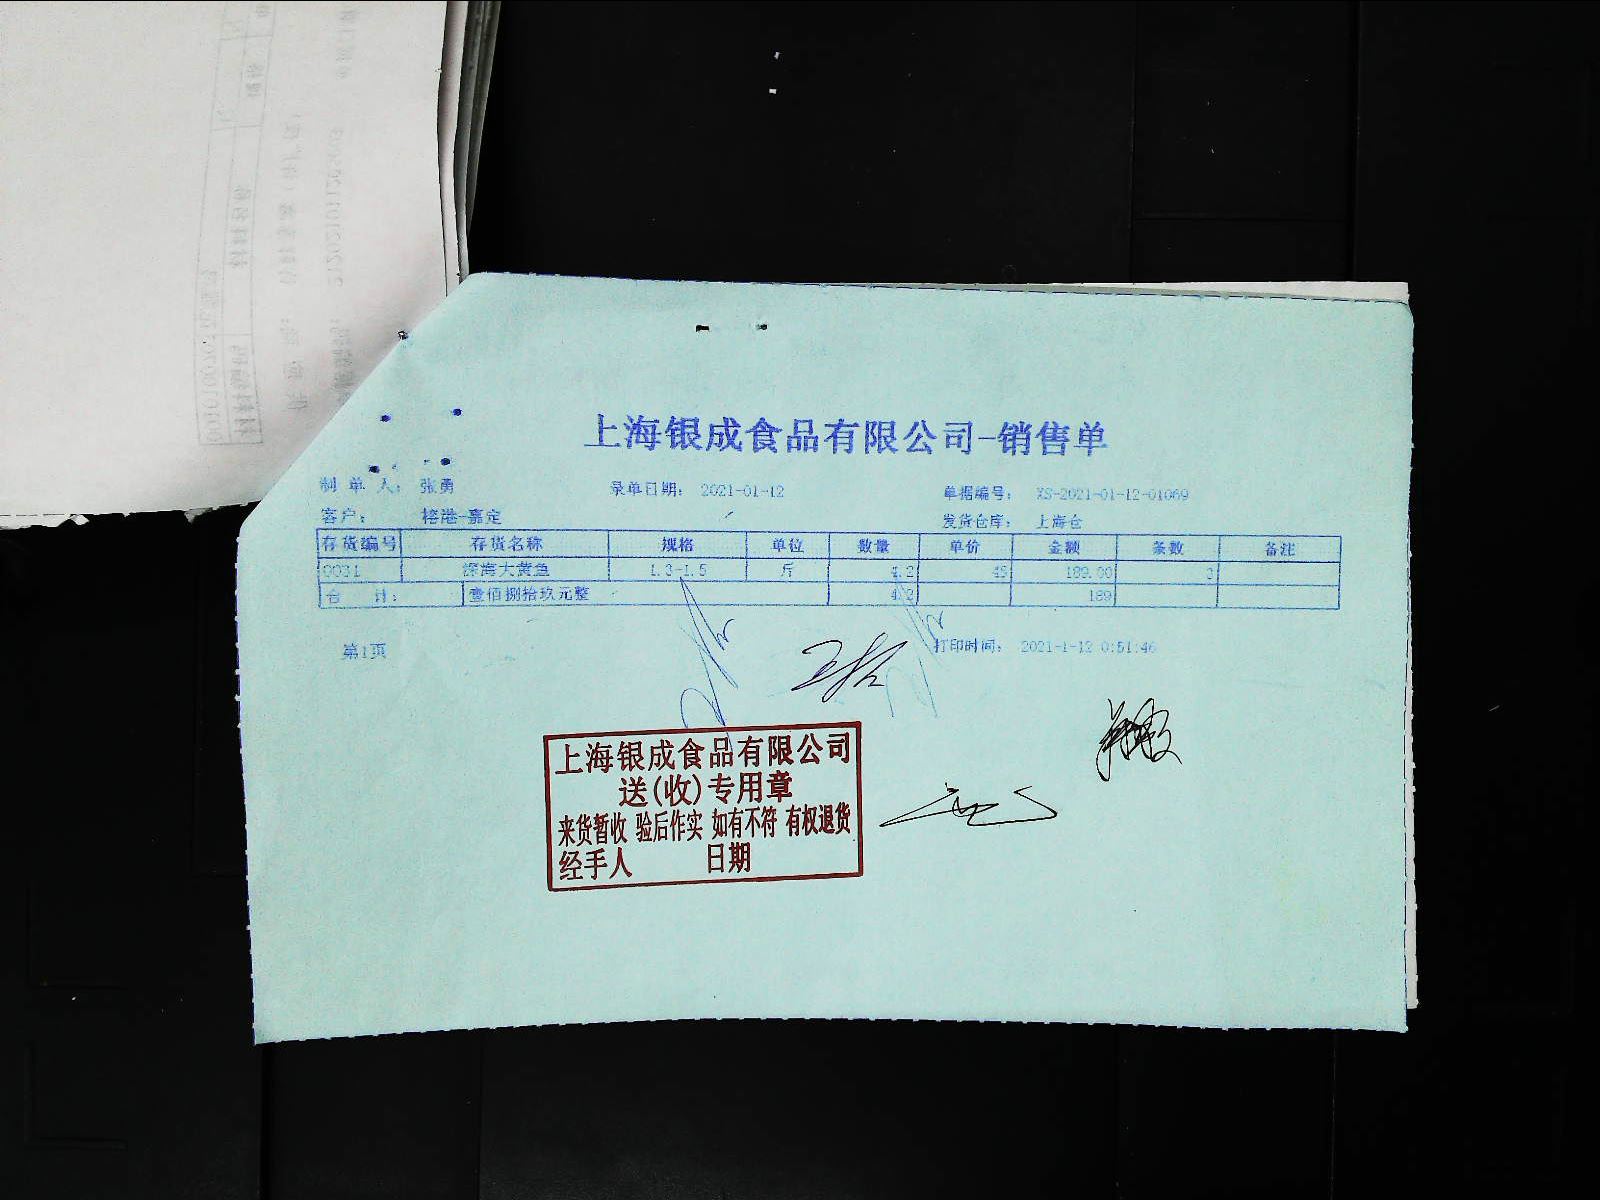 上海银成食品有限公司-销售单
制 单 人: 张勇 录单日期: 2021-01-12 单据编号: XS-2021-01-12-01069
客户: 榕港-嘉定 发货仓库: 上海仓
存货编号 存货名称 规格 单位 数量 单价 金额 条数 备注
0031 深海大黄鱼 1.3-1.5 斤 4.2 45 189.00 3
合 计: 壹佰捌拾玖元整 4.2 189
第1页 打印时间: 2021-1-12 0:51:46
上海银成食品有限公司
送(收)专用章
来货暂收 验后作实 如有不符 有权退货
经手人 日期